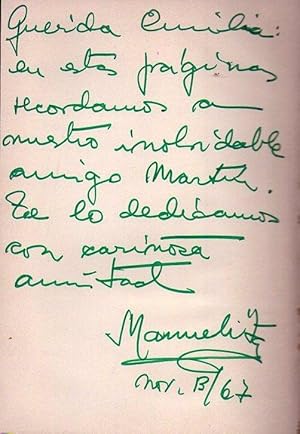 Querida Emilia:
en estas páginas
recordamos a
nuestro inolvidable
amigo Martín.
Te lo dedicamos
con cariñosa
amistad.
Manuelita
Nov. 13/67